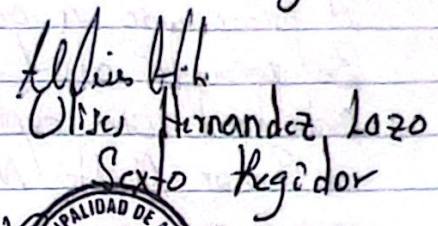 Ulises Hernandez Lozo
Sexto Regidor
PALIDAD DE